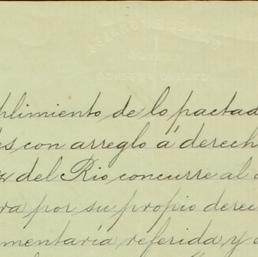 plimiento de lo pactad
es con arreglo á derech
del Rio concurre al
ra por su propio derec
mentaría referida y